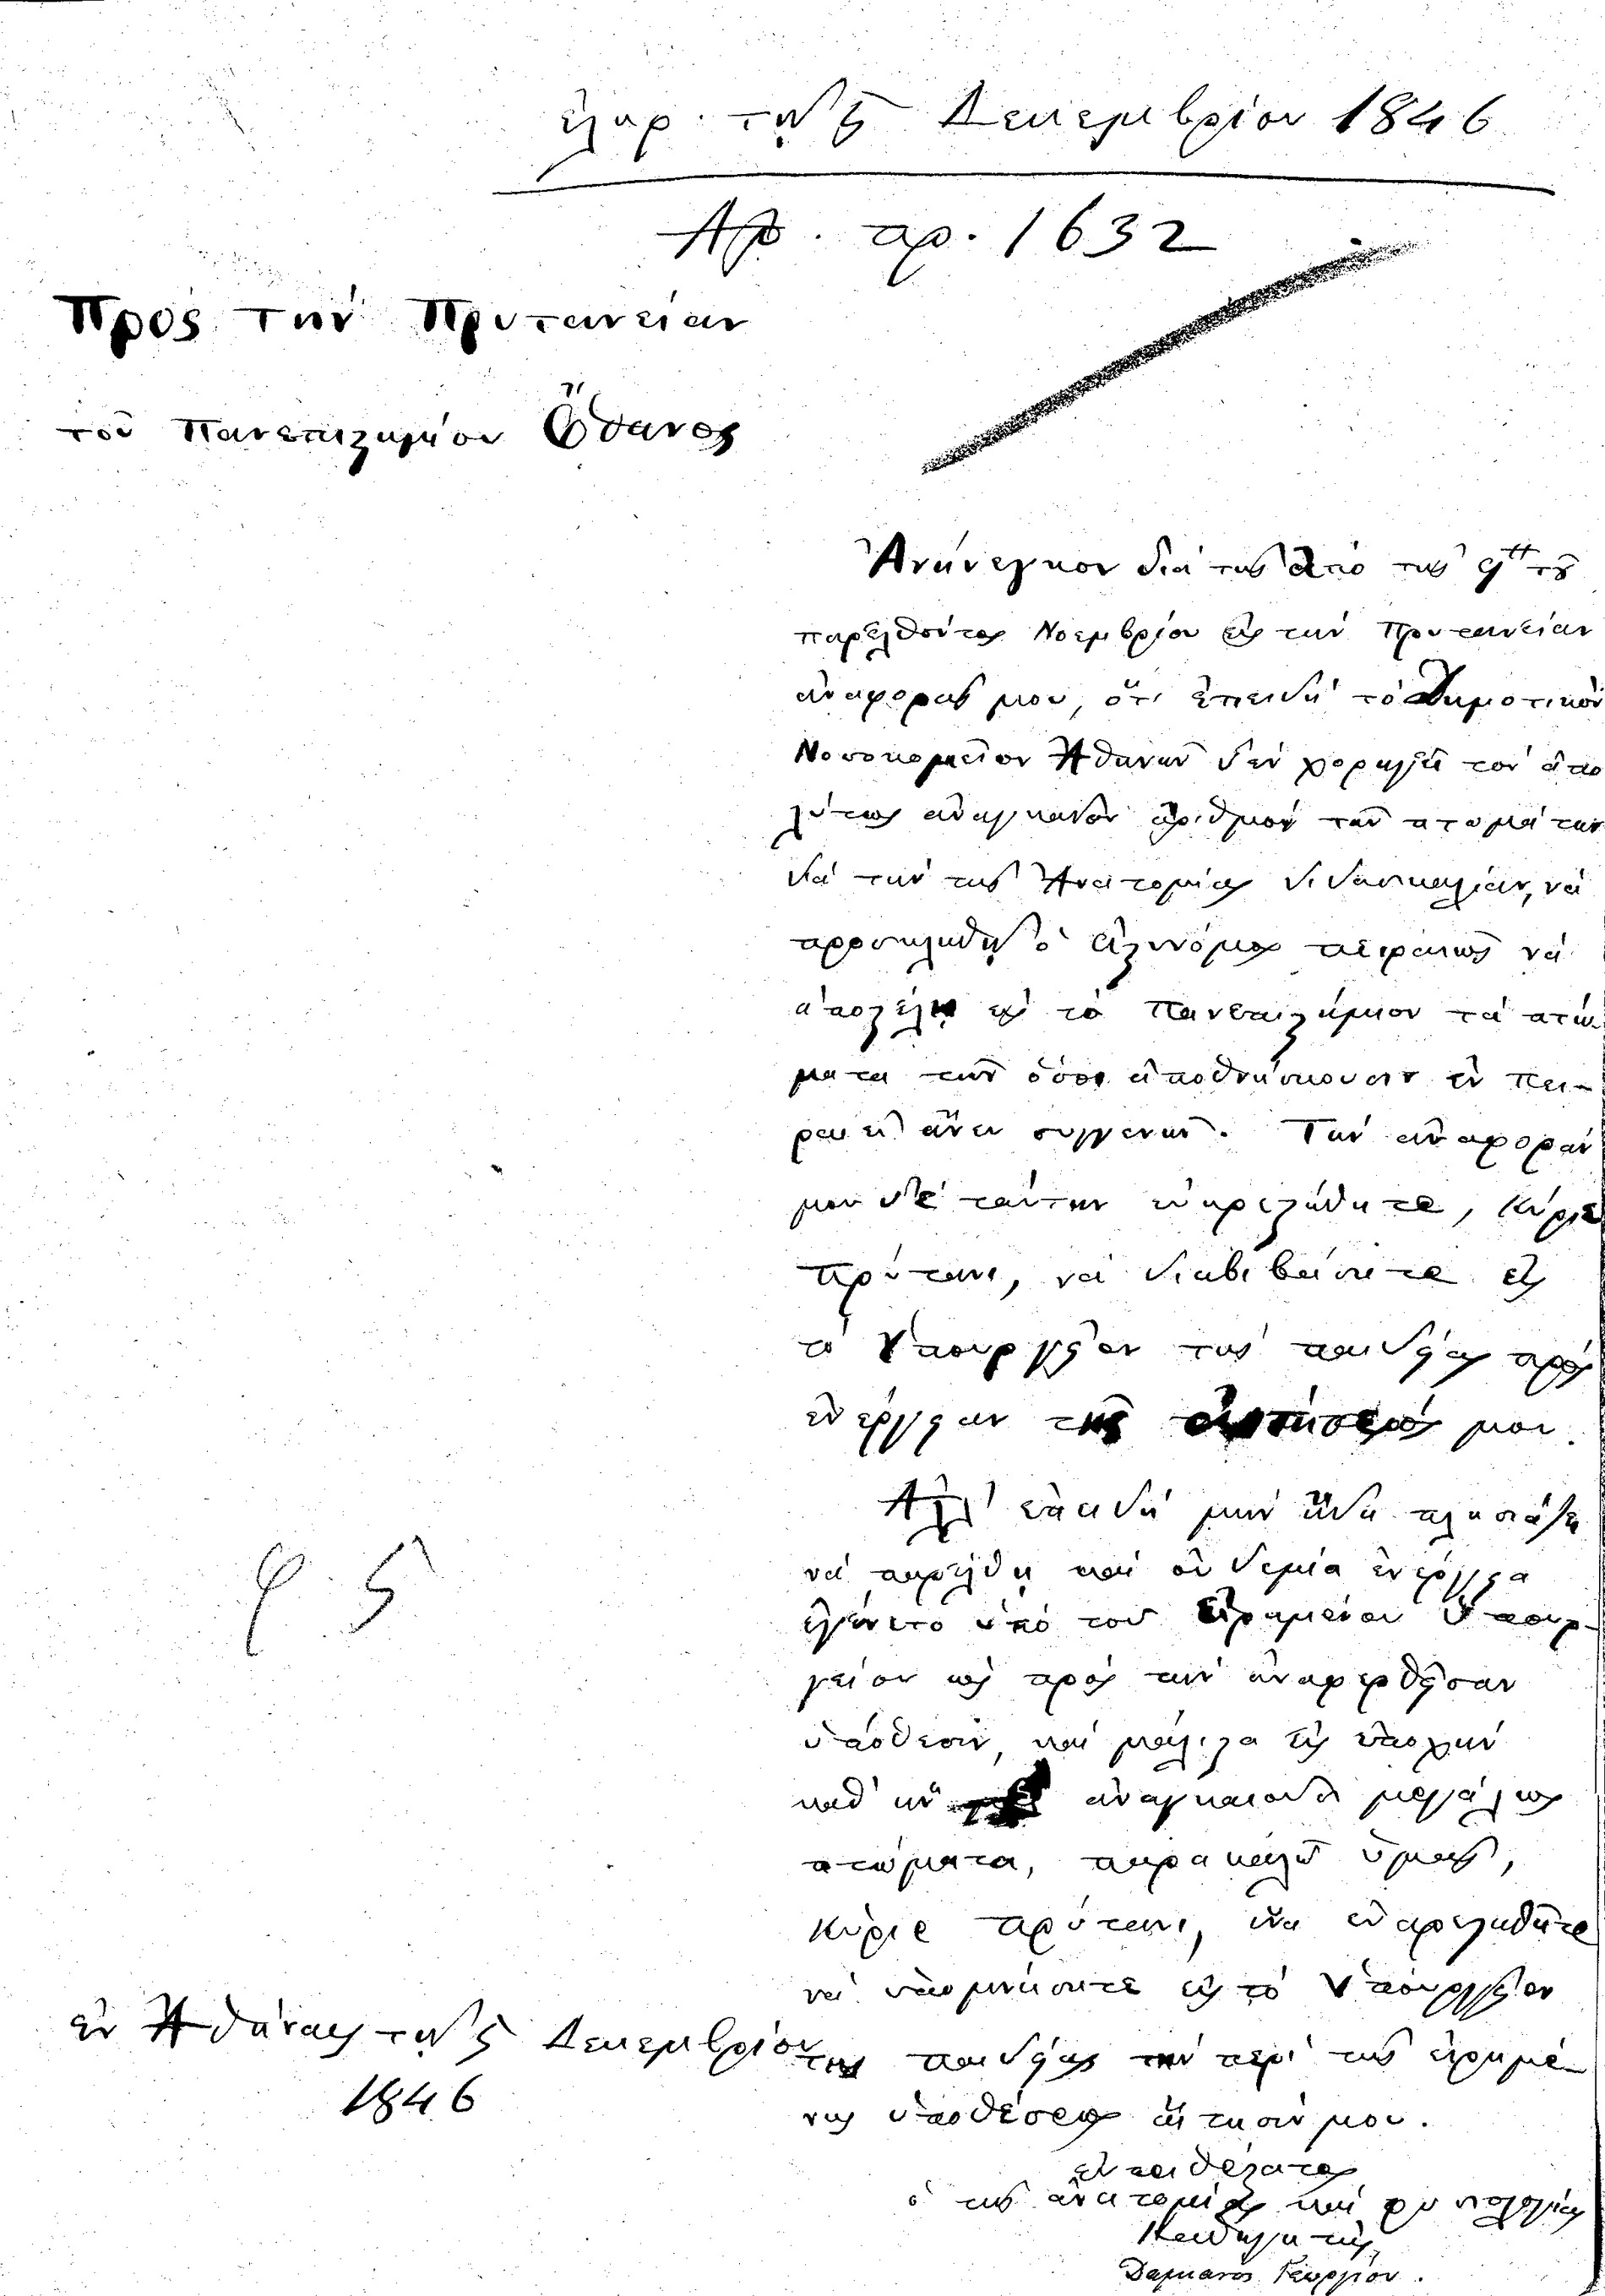 ἐλήφ. τῇ 5 Δεκεμβρίου 1846
Ἀρ. πρ. 1632
Πρὸς τὴν Πρυτανείαν
τοῦ Πανεπιστημίου Ὄθωνος
Ἀνήνεγκον διὰ τῆς ἀπὸ τῆς 9 τοῦ
παρελθόντος Νοεμβρίου εἰς τὴν Πρυτανείαν
ἀναφορᾶς μου, ὅτι ἐπειδὴ τὸ Δημοτικὸν
Νοσοκομεῖον Ἀθηνῶν δὲν χορηγεῖ τὸν ἀπο
λύτως ἀναγκαῖον ἀριθμὸν τῶν πτωμάτων
διὰ τὴν τῆς Ἀνατομίας διδασκαλίαν, νὰ
προσκληθῇ ὁ Ἀστυνόμος Πειραιῶς νὰ
ἀποστέλῃ εἰς τὸ Πανεπιστήμιον τὰ πτώ-
ματα τῶν ὅσοι ἀποθνήσκουσιν ἐν Πει-
ραιεῖ ἄνευ συγγενῶν. Τὴν ἀναφορὰν
μου δὲ ταύτην εὐηρεστήθητε, Κύριε
Πρύτανι, νὰ διαβιβάσητε εἰς
τὸ Ὑπουργεῖον τῆς παιδείας πρὸς
ἐνέργειαν τῆς αἰτήσεώς μου.
Ἀλλ' ἐπειδὴ μὴν ἤδη πλησιάζει
νὰ παρέλθῃ καὶ οὐδεμία ἐνέργεια
ἐγένετο ὑπὸ τοῦ εἰρημένου Ὑπουρ-
γείου ὡς πρὸς τὴν ἀναφερθεῖσαν
ὑπόθεσιν, καὶ μάλιστα εἰς ἐποχὴν
καθ' ἣν ἀναγκαιοῦσι μεγάλως
πτώματα, παρακαλῶ ὑμᾶς,
Κύριε πρύτανι, ἵνα εὐαρεστηθῆτε
νὰ ὑπομνήσητε εἰς τὸ Ὑπουργεῖον
τῆς παιδείας τὴν περὶ τῆς εἰρημέ-
νης ὑποθέσεως αἴτησίν μου.
ἐν Ἀθήναις τῇ 5 Δεκεμβρίου
1846
εὐπειθέστατος
ὁ τῆς ἀνατομίας καὶ φυσιολογίας
Καθηγητὴς
Δαμιανὸς Γεωργίου.